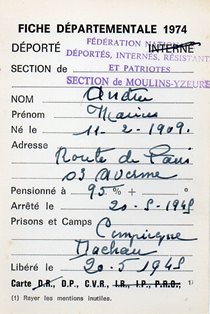 FICHE DÉPARTEMENTALE 1974
DÉPORTÉ INTERNÉ
FÉDÉRATION NATIONALE
DÉPORTÉS, INTERNÉS, RÉSISTANTS
ET PATRIOTES
SECTION DE MOULINS-YZEURE
SECTION de
NOM André
Prénom Marius
Né le 11-2-1909.
Adresse
Route de Paris
03 Avermes
Pensionné à 95 % + °
Arrêté le 20-5-1945
Prisons et Camps
Compiègne
Dachau
Libéré le 20-5 1945
Carte D.R., D.P., C.V.R., I.R., I.P., P.R.O.,
(1) Rayer les mentions inutiles.